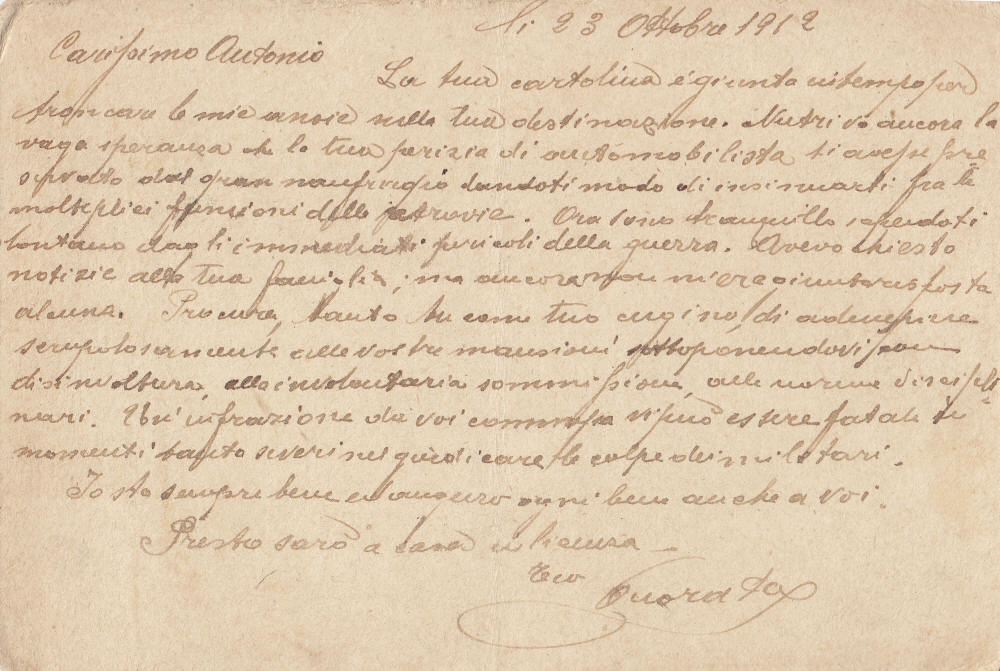 li 23 Ottobre 1912
Carissimo Antonio
La tua cartolina é giunta in tempo per
troncare le mie ansie sulla tua destinazione. Nutrivo ancora la
vaga speranza che la tua perizia di automobilista ti avesse pre=
servato dal gran naufragio dandoti modo di insinuarti fra le
molteplici funzioni delle retrovie. Ora sono tranquillo sapendoti
lontano dagli immediati pericoli della guerra. Avevo chiesto
notizie alla tua famiglia, ma ancora non mi era giunta risposta
alcuna. Procura, tanto tu come tuo cugino, di adempiere
scrupolosamente alle vostre mansioni sottoponendovi con
disinvoltura, alla involontaria sommissione, alle norme discipli=
nari. Un' infrazione da voi commessa vi può essere fatale in
momenti tanto severi nel giudicare le colpe dei militari.
Io sto sempre bene ed auguro ogni bene anche a voi.
Presto sarò a casa in licenza —
Tuo